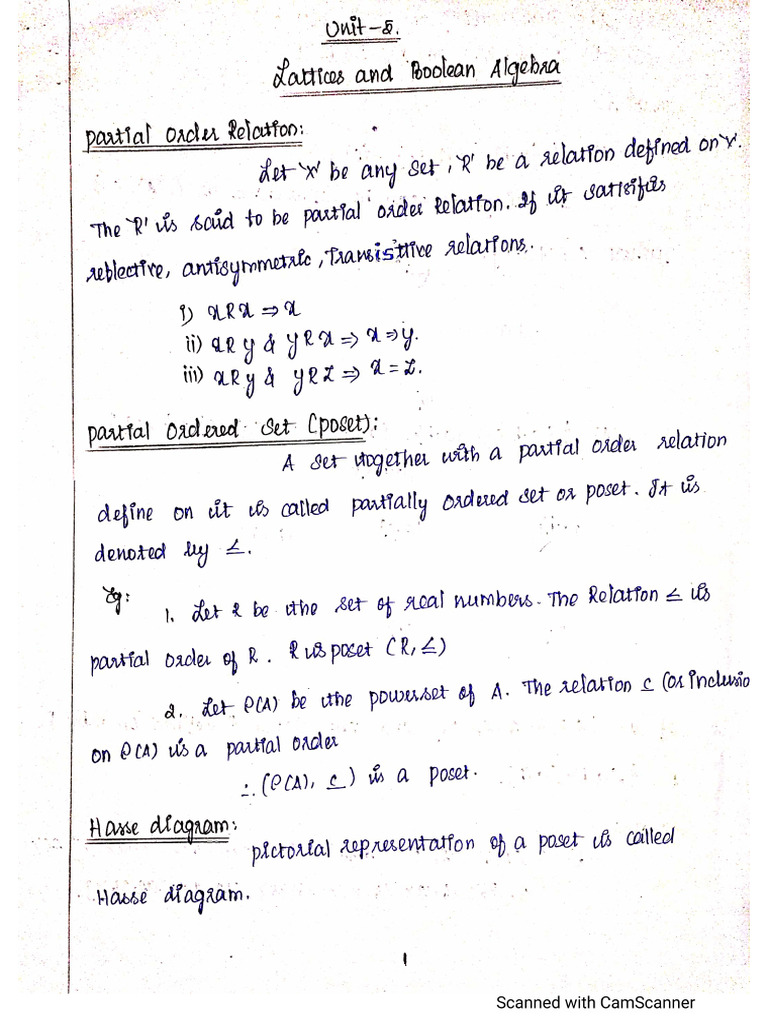 Unit-5.
Lattices and Boolean Algebra
Partial Order Relation:
Let 'X' be any set, 'R' be a relation defined on 'x'.
The 'R' is said to be partial order Relation. If it satisifies
reblective, antisymmetric, Transistitive relations.
i) xRx ⇒ x
ii) xRy & yRx ⇒ x ⇒ y.
iii) xRy & yRz ⇒ x = z.
Partial Ordered Set (poset):
A set together with a partial order relation
define on it is called partially ordered set or poset. It is
denoted by ≤.
Eg:
1. Let R be the set of real numbers. The Relation ≤ is
partial order of R. R is poset (R, ≤)
2. Let ρ(A) be the powerset of A. The relation ⊆ (or inclusio
on ρ(A) is a partial order
∴ (ρ(A), ⊆) is a poset.
Hasse diagram:
pictorial representation of a poset is called
Hasse diagram.
1
Scanned with CamScanner